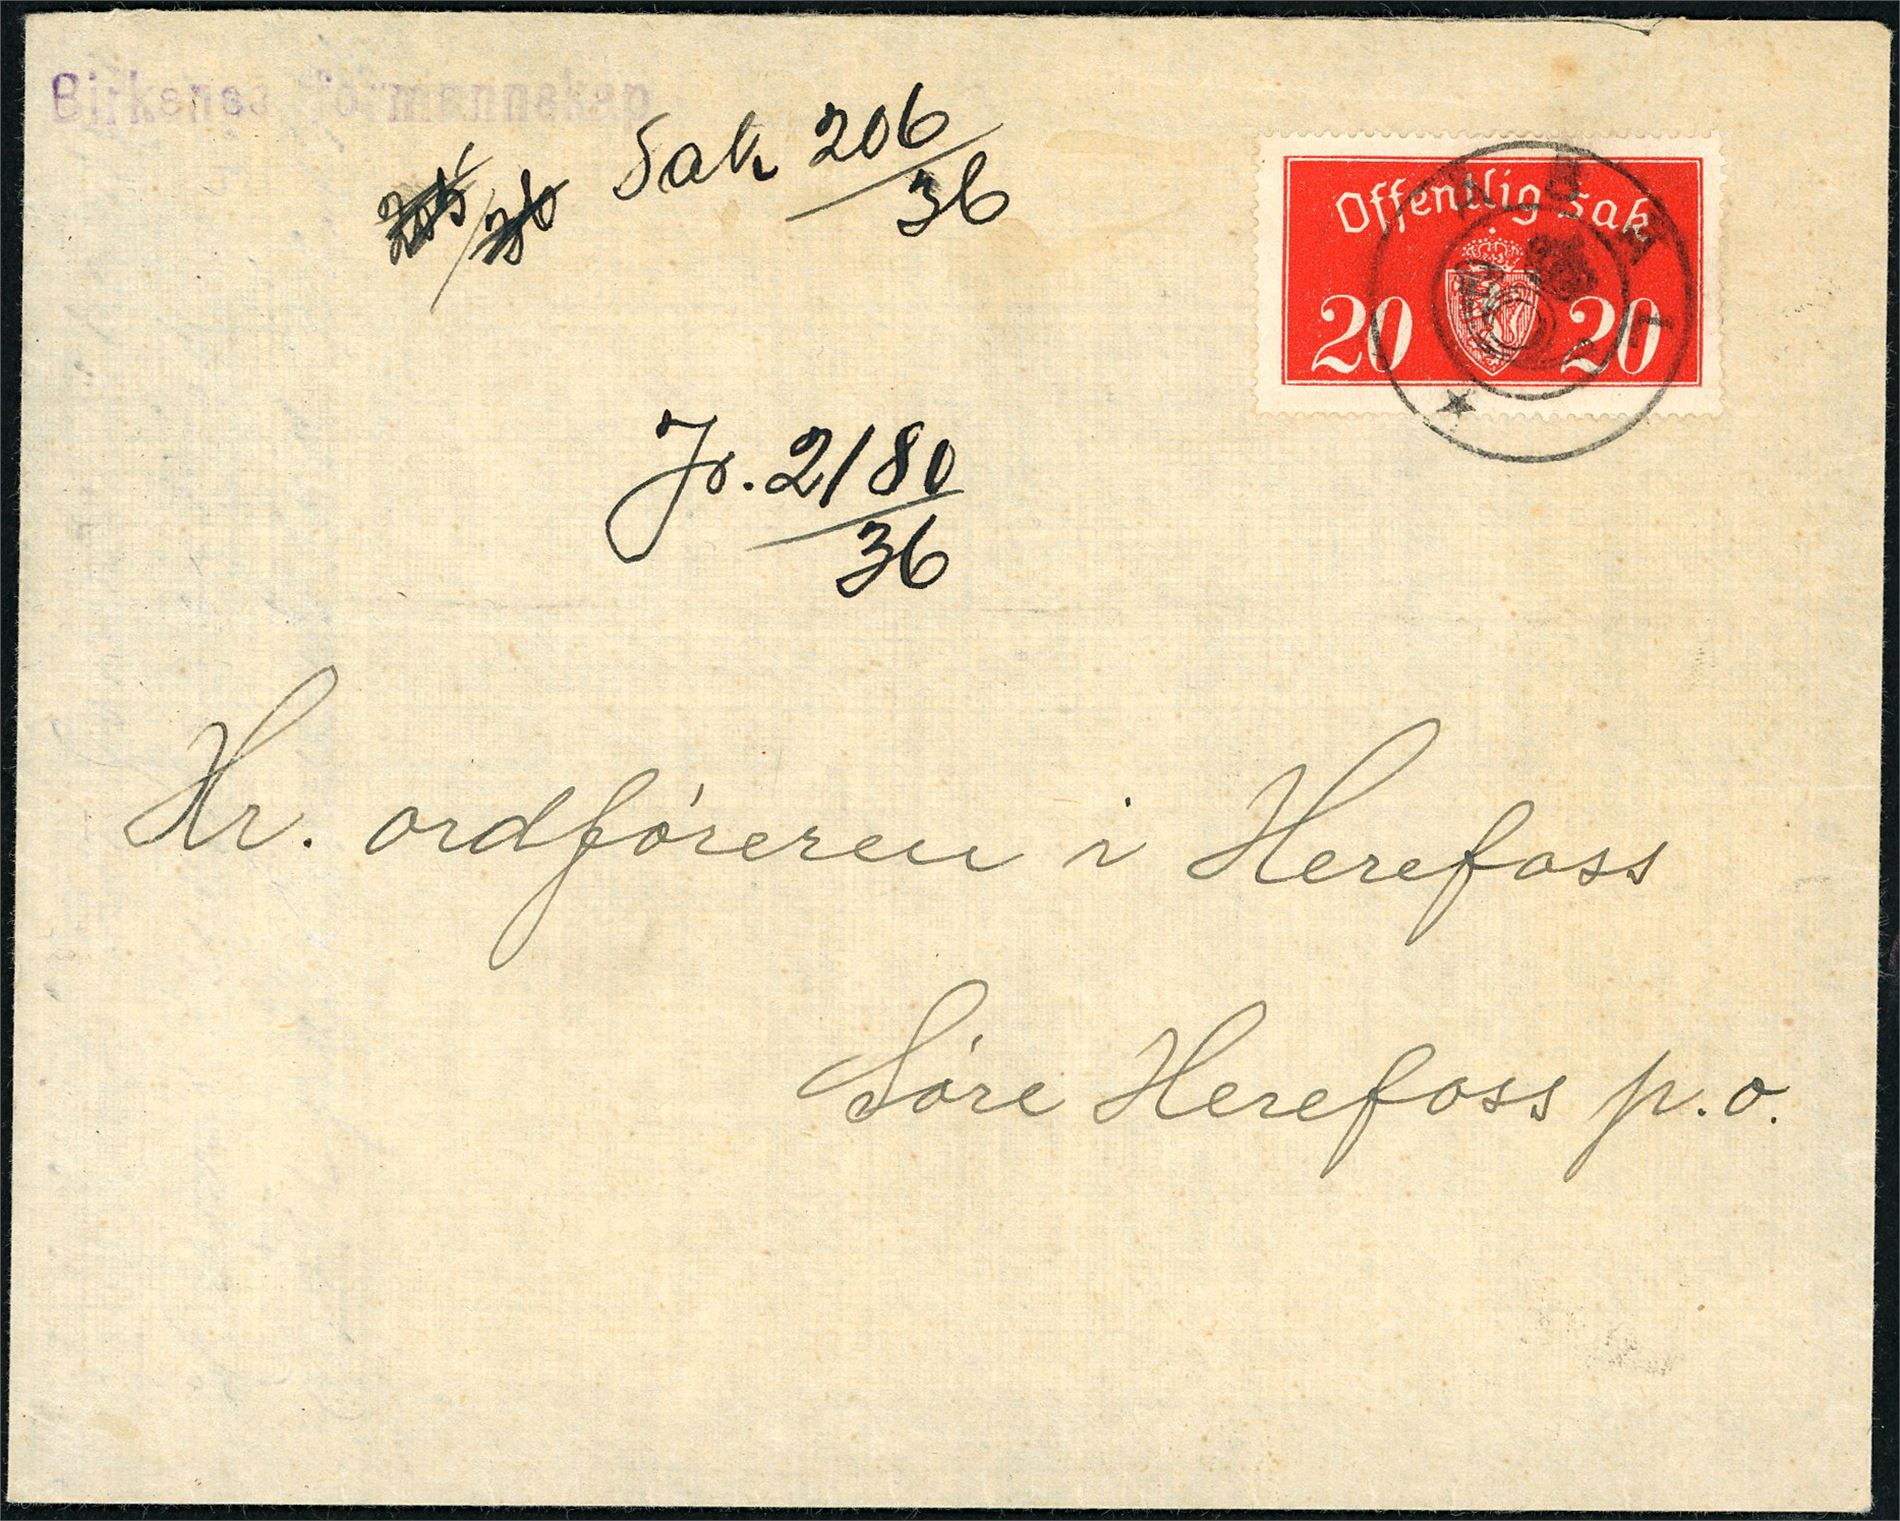 Birkenes formannskap
Sak 206/36
Offentlig sak
20 20
Jr. 2180/36
Hr. ordføreren i Herefoss
Søre Herefoss p.o.